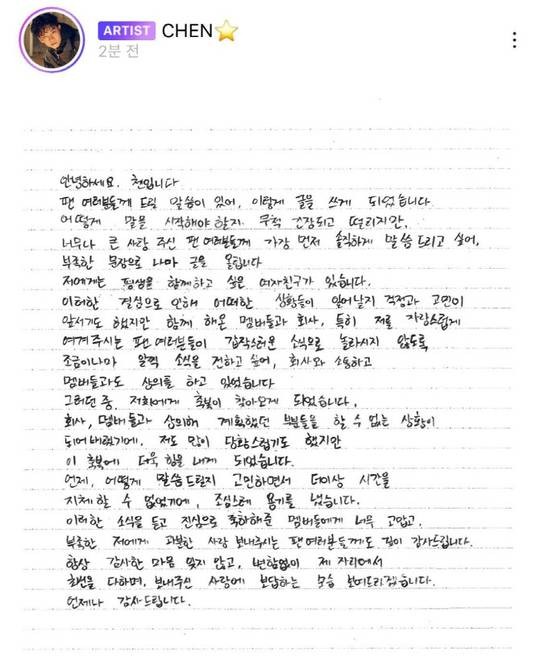 ARTIST CHEN
2분 전
안녕하세요. 첸입니다
팬 여러분들께 드릴 말씀이 있어, 이렇게 글을 쓰게 되었습니다
어떻게 말을 시작해야 할지 무척 긴장되고 떨리지만,
너무나 큰 사랑 주신 팬 여러분들께 가장 먼저 솔직하게 말씀드리고 싶어,
부족한 문장으로나마 글을 올립니다
저에게는 평생을 함께하고 싶은 여자친구가 있습니다.
이러한 결심으로 인해 어떠한 상황들이 일어날지 걱정과 고민이
앞서기도 했지만 함께 해온 멤버들과 회사, 특히 저를 자랑스럽게
여겨주시는 팬 여러분들이 갑작스러운 소식으로 놀라시지 않도록
조금이나마 일찍 소식을 전하고 싶어, 회사와 소통하고
멤버들과도 상의를 하고 있었습니다
그러던 중, 저희에게 축복이 찾아오게 되었습니다.
회사, 멤버들과 상의해 계획했던 부분들을 할 수 없는 상황이
되어버렸기에, 저도 많이 당황스럽기도 했지만
이 축복에 더욱 힘을 내게 되었습니다.
언제, 어떻게 말씀드릴지 고민하면서 더이상 시간을
지체할 수 없었기에, 조심스레 용기를 냈습니다.
이러한 소식을 듣고 진심으로 축하해준 멤버들에게 너무 고맙고,
부족한 저에게 과분한 사랑 보내주시는 팬 여러분들께도 깊이 감사드립니다.
항상 감사한 마음 잊지 않고, 변함없이 제 자리에서
최선을 다하며, 보내주신 사랑에 보답하는 모습 보여드리겠습니다.
언제나 감사드립니다.